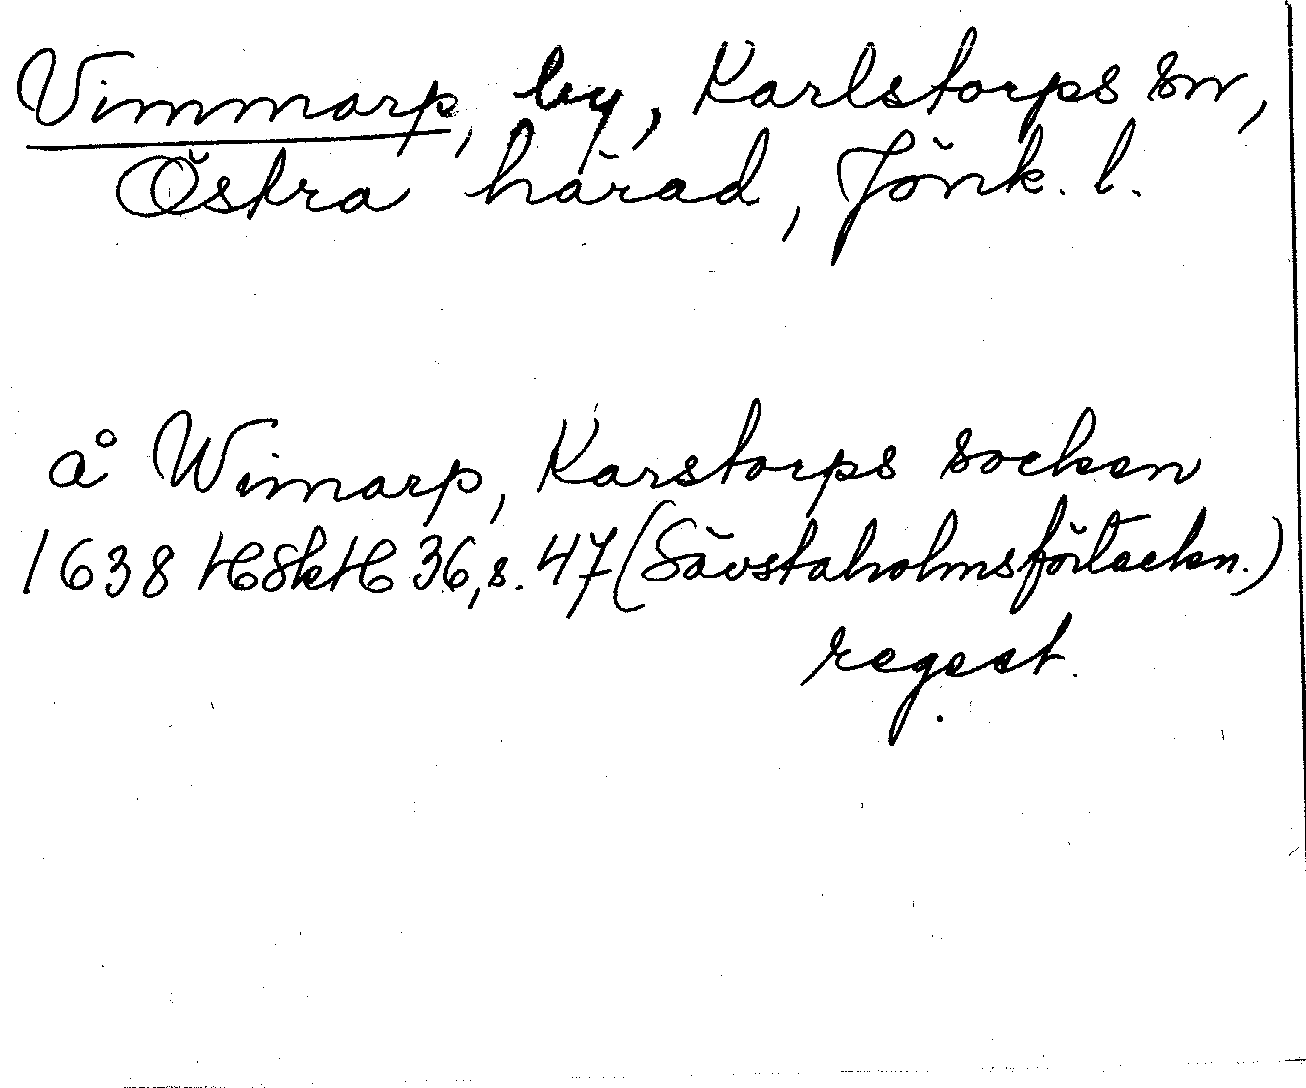 Vimmarp, by, Karlstorps sn,
Östra härad, Jönk. l.
å Wimarp, Karstorps socken
1638 HSkH 36, s. 47 (Sävstaholmsförteckn.)
regest.